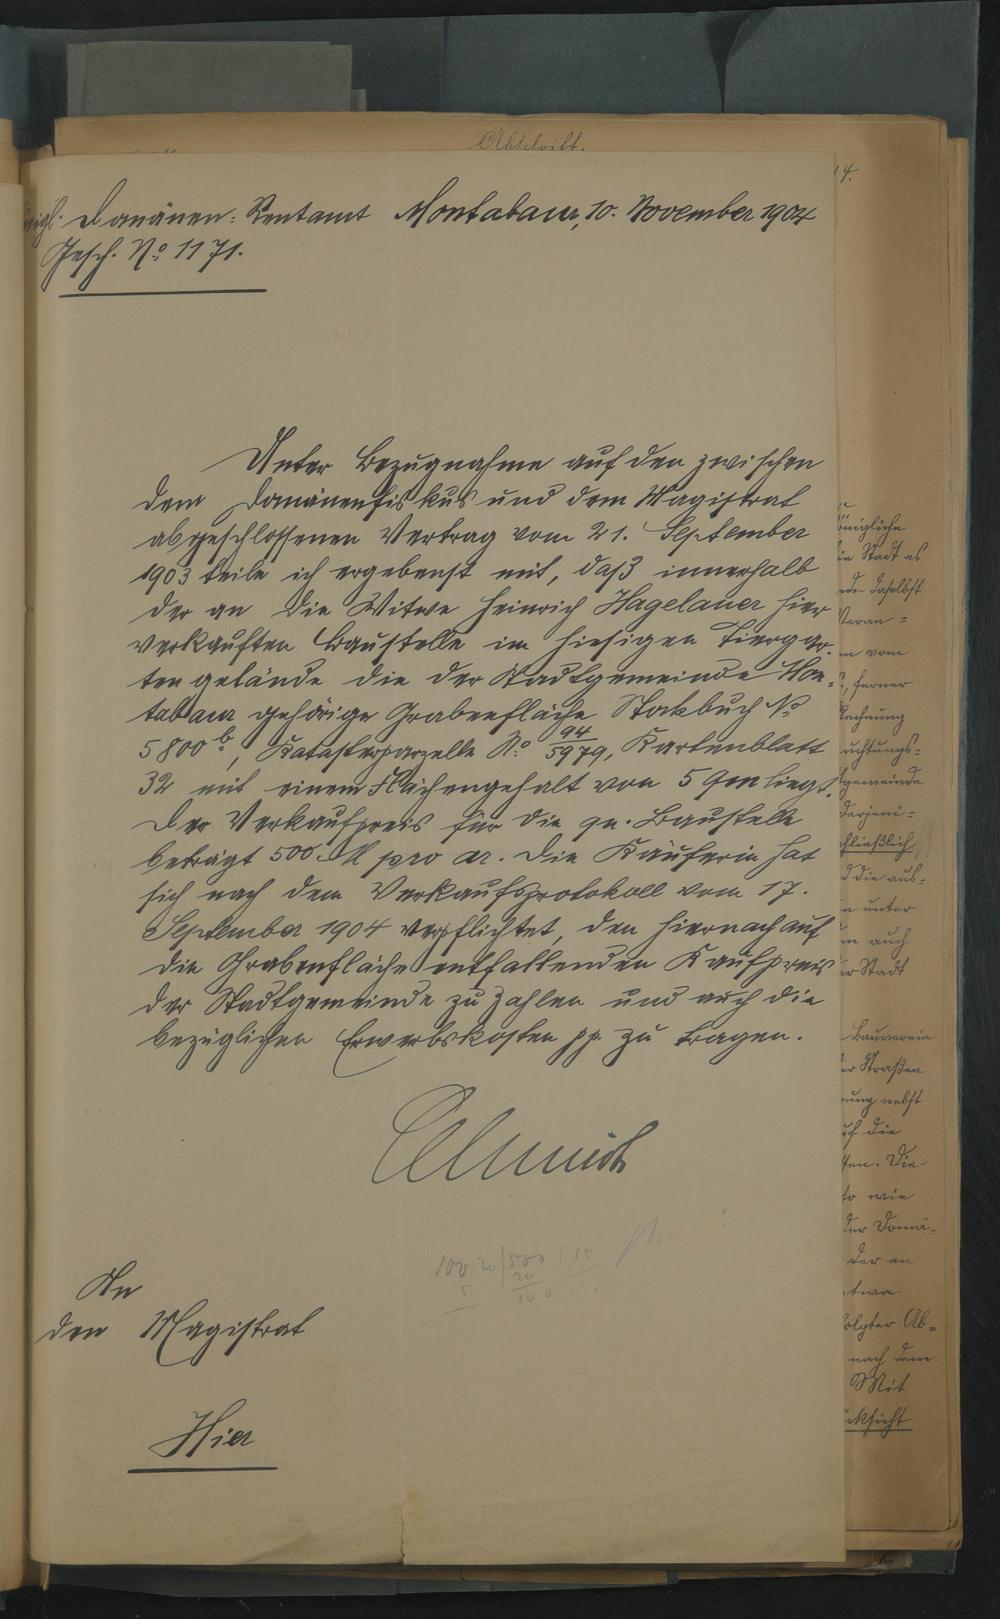 Abschrift.
Königl. Domänen-Rentamt Montabaur, 10. November 1904
Gesch. No 1171.
Unter Bezugnahme auf den zwischen
dem Domänenfiskus und dem Magistrat
abgeschlossenen Vertrag vom 21. September
1903 teile ich ergebenst mit, daß innerhalb
der an die Witwe Heinrich Hagelauer hier
verkauften Baustelle im hiesigen Tiergar-
tengelände die der Stadtgemeinde Mon-
tabaur gehörige Grabenfläche Stockbuch No
5800 b, Katasterparzelle No 94/5979, Kartenblatt
32 mit einem Flächengehalt von 5 qm liegt.
Der Verkaufspreis für die qu. Baustelle
beträgt 500 M pro ar. Die Käuferin hat
sich nach dem Verkaufsprotokoll vom 17.
September 1904 verpflichtet, den hiernach auf
die Grabenfläche entfallenden Kaufpreis
der Stadtgemeinde zu zahlen und auch die
bezüglichen Erwerbskosten pp. zu tragen.
An
den Magistrat
Hier
königliche
die Stadt es
daselbst
Veran-
vom
ferner
Rechnung
gemeinde
derjeni-
schließlich
die aus-
unter
auch
Stadt
Bauverein
der Straßen
nebst
auf die
Die
so wie
der Domä-
der an
etwa
folgter Ab-
nach dem
Mit